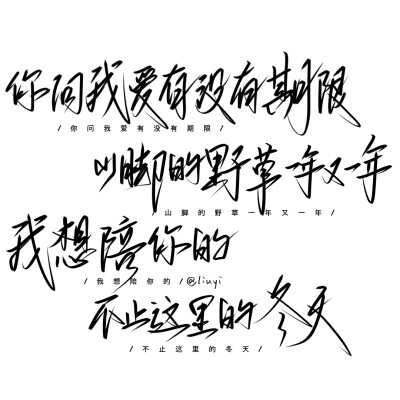 你问我爱有没有期限
/你问我爱有没有期限/
山脚的野草一年又一年
/山脚的野草一年又一年/
我想陪你的
/我想陪你的/@linyi
不止这里的冬天
/不止这里的冬天/